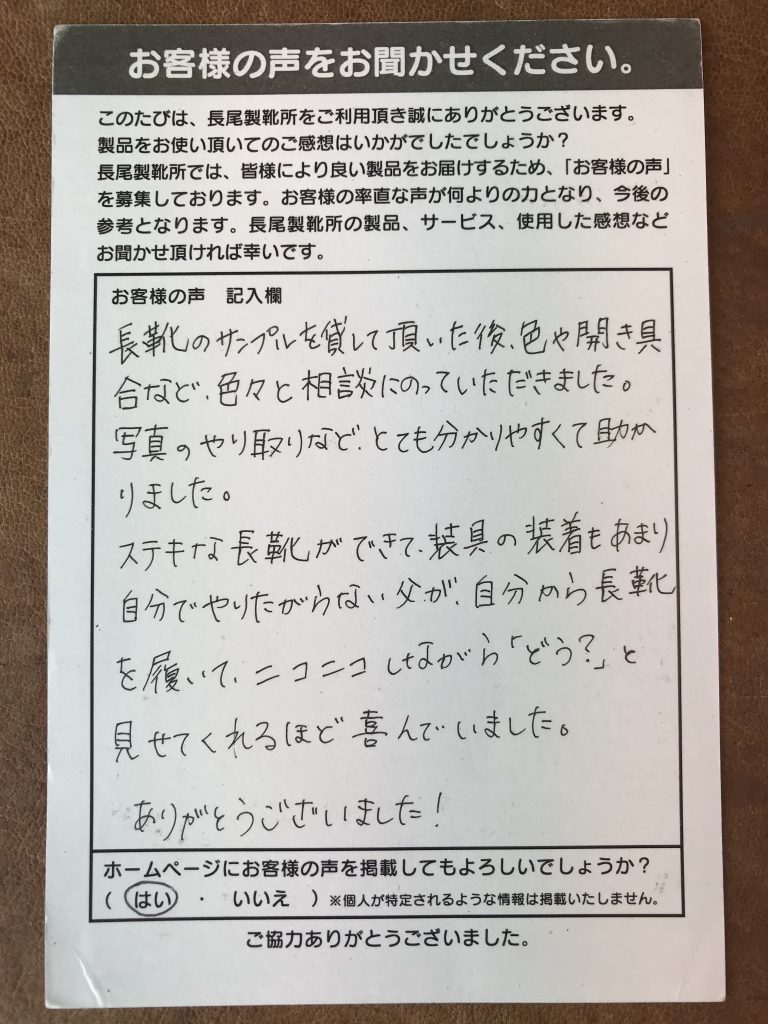 お客様の声をお聞かせください。
このたびは、長尾製靴所をご利用頂き誠にありがとうございます。
製品をお使い頂いてのご感想はいかがでしたでしょうか?
長尾製靴所では、皆様により良い製品をお届けするため、「お客様の声」
を募集しております。お客様の率直な声が何よりの力となり、今後の
参考となります。長尾製靴所の製品、サービス、使用した感想など
お聞かせ頂ければ幸いです。
お客様の声 記入欄
長靴のサンプルを貸して頂いた後、色や開き具
合など、色々と相談にのっていただきました。
写真のやり取りなど、とても分かりやすくて助か
りました。
ステキな長靴ができて、装具の装着もあまり
自分でやりたがらない父が、自分から長靴
を履いて、ニコニコしながら「どう?」と
見せてくれるほど喜んでいました。
ありがとうございました!
ホームページにお客様の声を掲載してもよろしいでしょうか?
( はい ・ いいえ ) ※個人が特定されるような情報は掲載いたしません。
ご協力ありがとうございました。